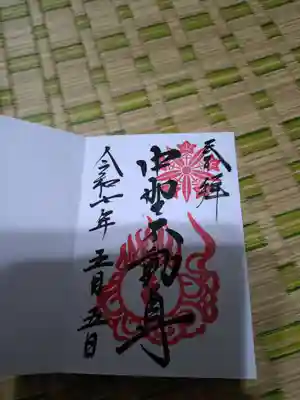 奉拝
中野不動尊
令和七年 五月五日